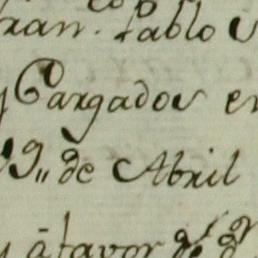 ran. Pablo
y Cargados en
9,, de Abril
y â favor